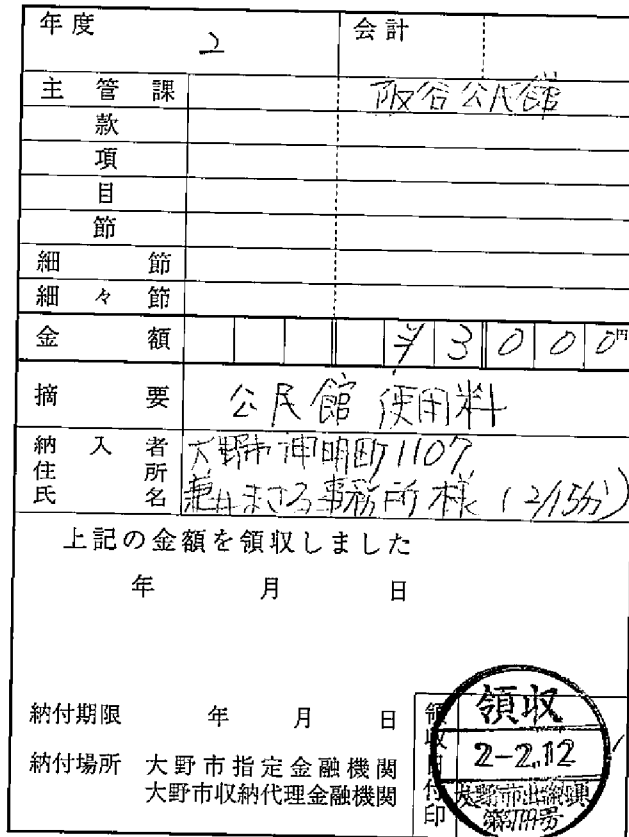 年度 2 会計
主管課 阪谷公民館
款
項
目
節
細節
細々節
金額 ¥3000円
摘要 公民館使用料
納入者 大野市 明町1107
住所
氏名 兼井まさる事務所様(2/15分)
上記の金額を領収しました
年 月 日
納付期限 年 月 日
納付場所 大野市指定金融機関
大野市収納代理金融機関
領収日付印
領収
2-2.12
大野市出納員